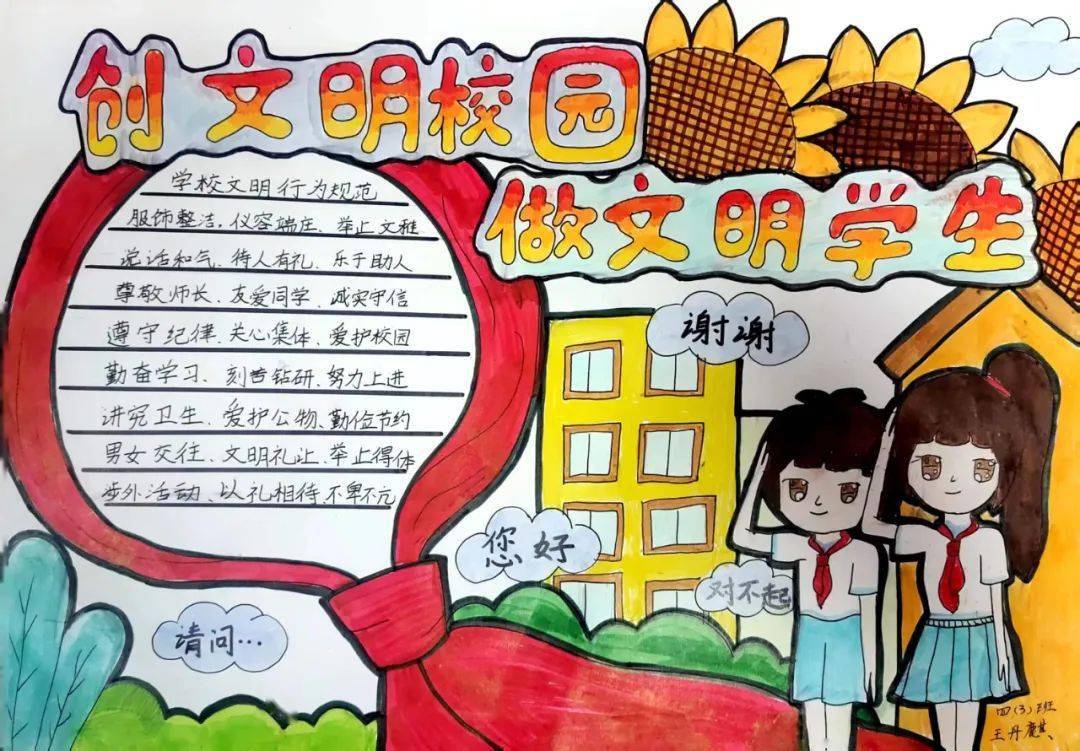 创文明校园
做文明学生
学校文明行为规范
服饰整洁,仪容端庄、举止文雅
说话和气、待人有礼、乐于助人
尊敬师长、友爱同学、诚实守信
遵守纪律、关心集体、爱护校园
勤奋学习、刻苦钻研、努力上进
讲究卫生、爱护公物、勤俭节约
男女交往、文明礼让、举止得体
涉外活动、以礼相待 不卑不亢
谢谢
您好
对不起
请问…
四(3)班
王丹麒